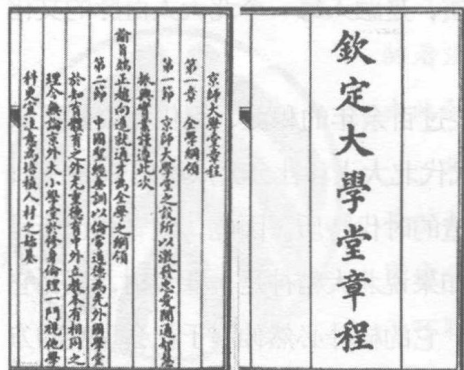 欽定大學堂章程
京師大學堂章程
第一章 全學綱領
第一節 京師大學堂之設所以激發忠愛開通智慧
振興實業謹遵此次
諭旨端正趨向造就通才為全學之綱領
第二節 中國聖經垂訓以倫常道德為先外國學堂
於知育體育之外尤重德育中外立教本有相同之
理今無論京外大小學堂於修身倫理一門視他學
科更宜注意為培植人材之始基